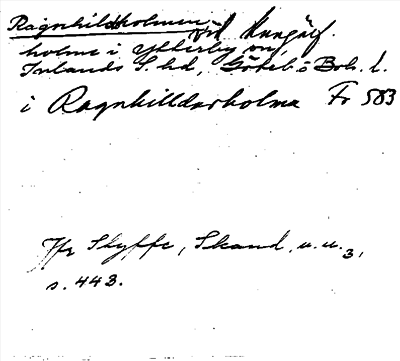 Ragnhildsholmen vid Kungälf.
holme i Ytterby sn,
Inlands S. hd, Göteb. o Boh. l.
i Ragnhilldarholma Fr 583
Jfr Styffe, Skand. u. u. 3,
s. 443.